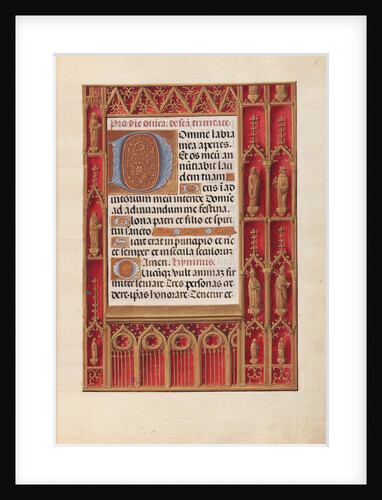 Pro die dñica: de scã trinitate.
Domine labia
mea aperies.
Et os meũ an
nũtiabit lau
dem tuam
Deus ĩ ad
iutorium meũ intende Domĩe
ad adiuuandum me festina.
Gloria patri et filio et spiri
tui sancto.
Sicut erat in principio et nũc
et semper et in secula seculorũ
Amen. Hymnus.
Quicũq; vult animaz̃ suã
inter seruare Tres personas cr̃
dere ip̃as honorare Tenetur et